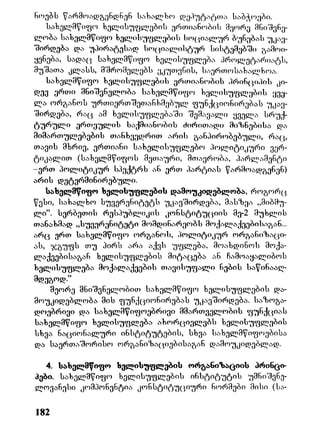 ნოებს წარმოადგენდნენ სახალხო დეპუტატთა საბჭოები.
სახელმწიფო ხელისუფლების ერთიანობის მეორე მნიშვნე-
ლობა სახელმწიფო ხელისუფლების სოციალურ ბუნებას უკავ-
შირდება და უპირატესად სოციალისტურ სისტემებში გამოი-
ყენება, სადაც სახელმწიფო ხელისუფლება პროლეტარიატს,
მუშათა კლასს, მშრომელებს ეკუთვნის, საერთოსახალხოა.
სახელმწიფო ხელისუფლების ერთიანობის პრინციპის კი-
დევ ერთი მნიშვნელობა სახელმწიფო ხელისუფლების ყვე-
ლა ორგანოს ურთიერთშეთანხმებულ ფუნქციონირებას უკავ-
შირდება, რაც ამ ხელისუფლებაში შემავალი ყველა სრუქ-
ტურული ერთეულის საქმიანობის ძირითადი მიზნებისა და
მიმართულებების თანხვედრით არის განპირობებული, რაც,
თავის მხრივ, ერთიანი სახელისუფლებო პოლიტიკური ვერ-
ტიკალით (სახელმწიფოს მეთაური, მთავრობა, პარლამენტი
–ერთ პოლიტიკურ სპექტრს ან ერთ პარტიას წარმოადგენენ)
არის დეტერმინირებული.
სახელმწიფო ხელისუფლების დამოუკიდებლობა, როგორც
წესი, სახალხო სუვერენიტეტს უკავშირდება, მასზეა „მიბმუ-
ლი“. სერბეთის რესპუბლიკის კონსტიტუციის მე-2 მუხლის
თანახმად „სუვერენიტეტი მომდინარეობს მოქალაქეებისაგან.
არც ერთ სახელმწიფო ორგანოს, პოლიტიკურ ორგანიზაცი-
ას, ჯგუფს თუ პირს არა აქვს უფლება, მოახდინოს მოქა-
ლაქეებისაგან ხელისუფლების მიტაცება ან ჩამოაყალიბოს
ხელისუფლება მოქალაქეების თავისუფალი ნების საწინააღ-
მდეგოდ.“
მეორე მნიშვნელობით სახელმწიფო ხელისუფლების და-
მოუკიდებლობა მის ფუნქციონირებას უკავშირდება. საზოგა-
დოებრივი და სახელმწიფოებრივი მმართველობის ფუნქციას
სახელმწიფო ხელისუფლება ახორციელებს ხელისუფლების
სხვა ნაციონალური ინსტიტუტების, სხვა სახელმწიფოებისა
და საერთაშორისო ორგანიზაციებისაგან დამოუკიდებლად.
4. სახელმწიფო ხელისუფლების ორგანიზაციის პრინცი-
პები. სახელმწიფო ხელისუფლების ინსტიტუტის უმნიშვნე-
ლოვანესი კომპონენტია კონსტიტუციური ნორმები მისი (სა-
182